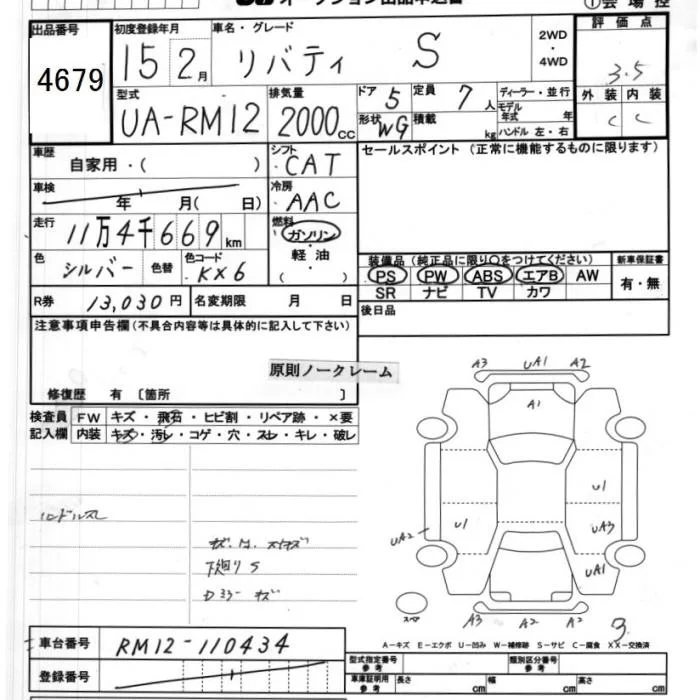 オークション出品申込書
①会場控
出品番号 4679
初度登録年月 15 2月
車名・グレード リバティ S
2WD・4WD
評価点 3.5
型式 UA-RM12
排気量 2000cc
ドア 5
定員 7人
形状 WG
積載 kg
ディーラー・並行
モデル年式 年
ハンドル 左・右
外装 C
内装 C
車歴 自家用・( )
シフト CAT
セールスポイント (正常に機能するものに限ります)
車検 年 月( 日)
冷房 AAC
走行 11万4千669km
燃料 ガソリン・軽油・( )
色 シルバー
色替
色コード KX6
装備品 (純正品に限り○をつけてください)
新車保証書
PS PW ABS エアB AW
有・無
SR ナビ TV カワ
R券 13,030円
名変期限 月 日
後日品
注意事項申告欄(不具合内容等は具体的に記入して下さい)
原則ノークレーム
修復歴 有 〔箇所 〕
検査員記入欄
FW キズ・飛石・ヒビ割・リペア跡・×要
内装 キズ・汚レ・コゲ・穴・スレ・キレ・破レ
A3 UA1 A2
A1
U1
U1 UA3
UA2
UA1
ハンドルスレ
下廻りS
Dミラーキズ
スペア
A3 A2 A2
3
A－キズ E－エクボ U－凹み W－補修跡 S－サビ C－腐食 XX－交換済
車台番号 RM12-110434
型式指定番号 参考
類別区分番号 参考
登録番号
車庫証明用 参考
長さ cm
幅 cm
高さ cm